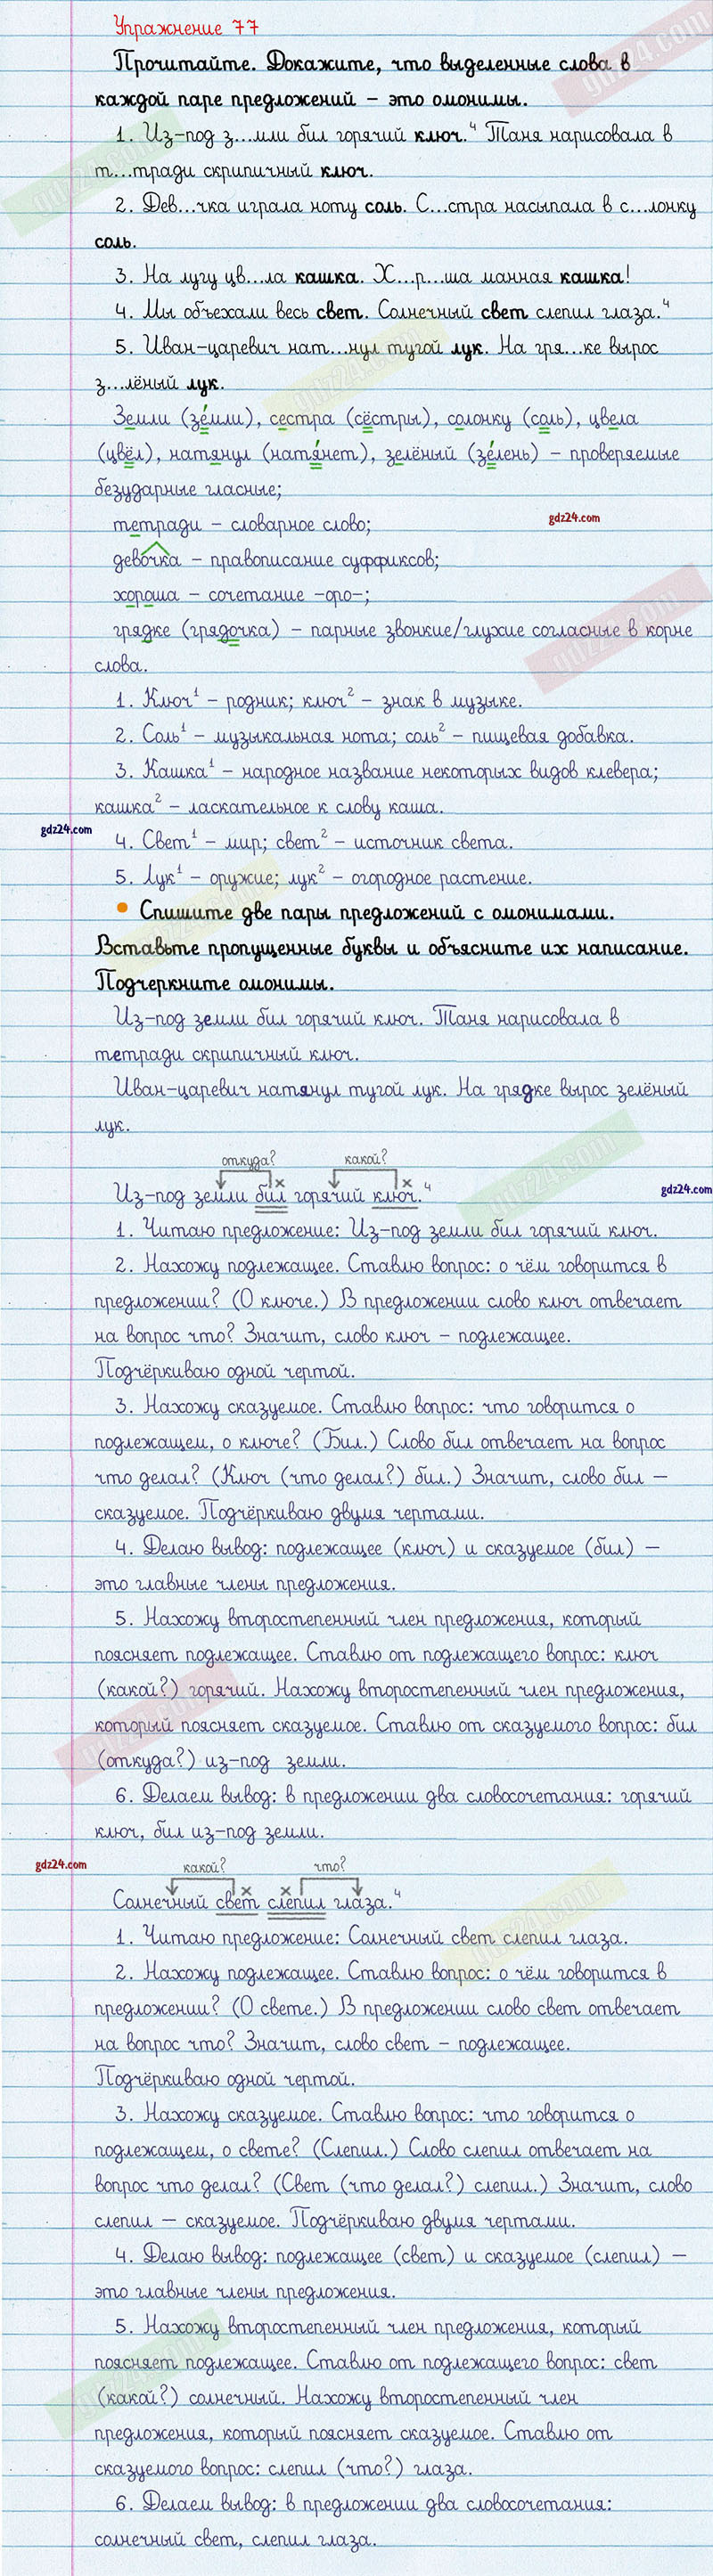 Упражнение 77
Прочитайте. Докажите, что выделенные слова в
каждой паре предложений – это омонимы.
1. Из-под з...мли бил горячий ключ.⁴ Таня нарисовала в
т...тради скрипичный ключ.
2. Дев...чка играла ноту соль. С...стра насыпала в с...лонку
соль.
3. На лугу цв...ла кашка. Х...р...ша манная кашка!
4. Мы объехали весь свет. Солнечный свет слепил глаза.⁴
5. Иван-царевич нат...нул тугой лук. На гря...ке вырос
з...лёный лук.
Земли (зéмли), сестра (сёстры), солонку (соль), цвела
(цвёл), натянул (натя́нет), зелёный (зéлень) – проверяемые
безударные гласные;
тетради – словарное слово;
gdz24.com
девочка – правописание суффиксов;
хороша – сочетание -оро-;
грядке (грядочка) – парные звонкие/глухие согласные в корне
слова.
1. Ключ¹ – родник; ключ² – знак в музыке.
2. Соль¹ – музыкальная нота; соль² – пищевая добавка.
3. Кашка¹ – народное название некоторых видов клевера;
кашка² – ласкательное к слову каша.
gdz24.com
4. Свет¹ – мир; свет² – источник света.
5. Лук¹ – оружие; лук² – огородное растение.
• Спишите две пары предложений с омонимами.
Вставьте пропущенные буквы и объясните их написание.
Подчеркните омонимы.
Из-под земли бил горячий ключ. Таня нарисовала в
тетради скрипичный ключ.
Иван-царевич натянул тугой лук. На грядке вырос зелёный
лук.
откуда? какой?
Из-под земли бил горячий ключ.⁴
gdz24.com
1. Читаю предложение: Из-под земли бил горячий ключ.
2. Нахожу подлежащее. Ставлю вопрос: о чём говорится в
предложении? (О ключе.) В предложении слово ключ отвечает
на вопрос что? Значит, слово ключ – подлежащее.
Подчёркиваю одной чертой.
3. Нахожу сказуемое. Ставлю вопрос: что говорится о
подлежащем, о ключе? (Бил.) Слово бил отвечает на вопрос
что делал? (Ключ (что делал?) бил.) Значит, слово бил –
сказуемое. Подчёркиваю двумя чертами.
4. Делаю вывод: подлежащее (ключ) и сказуемое (бил) –
это главные члены предложения.
5. Нахожу второстепенный член предложения, который
поясняет подлежащее. Ставлю от подлежащего вопрос: ключ
(какой?) горячий. Нахожу второстепенный член предложения,
который поясняет сказуемое. Ставлю от сказуемого вопрос: бил
(откуда?) из-под земли.
6. Делаем вывод: в предложении два словосочетания: горячий
ключ, бил из-под земли.
gdz24.com
какой? что?
Солнечный свет слепил глаза.⁴
1. Читаю предложение: Солнечный свет слепил глаза.
2. Нахожу подлежащее. Ставлю вопрос: о чём говорится в
предложении? (О свете.) В предложении слово свет отвечает
на вопрос что? Значит, слово свет – подлежащее.
Подчёркиваю одной чертой.
3. Нахожу сказуемое. Ставлю вопрос: что говорится о
подлежащем, о свете? (Слепил.) Слово слепил отвечает на
вопрос что делал? (Свет (что делал?) слепил.) Значит, слово
слепил – сказуемое. Подчёркиваю двумя чертами.
4. Делаю вывод: подлежащее (свет) и сказуемое (слепил) –
это главные члены предложения.
5. Нахожу второстепенный член предложения, который
поясняет подлежащее. Ставлю от подлежащего вопрос: свет
(какой?) солнечный. Нахожу второстепенный член
предложения, который поясняет сказуемое. Ставлю от
сказуемого вопрос: слепил (что?) глаза.
6. Делаем вывод: в предложении два словосочетания:
солнечный свет, слепил глаза.